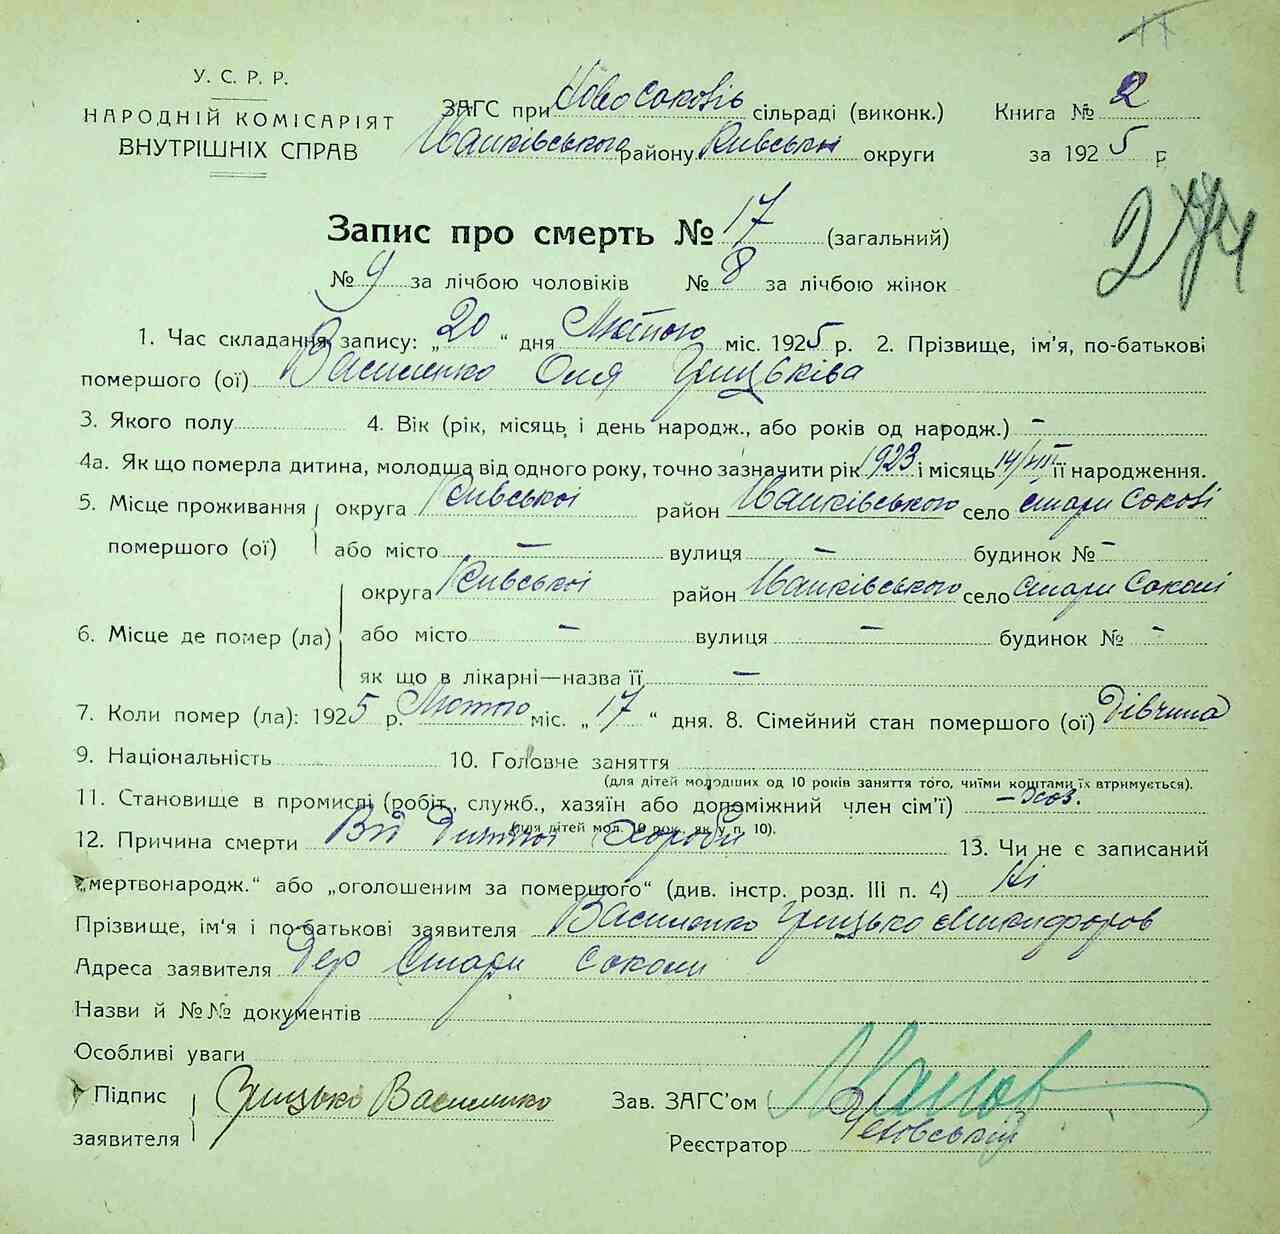 У. С. Р. Р.
НАРОДНІЙ КОМІСАРІЯТ
ВНУТРІШНІХ СПРАВ
ЗАГС при Ново Соковіь сільраді (виконк.)
Іванківського району Київської округи
Книга № 2
за 1925 р
274
Запис про смерть № 17 (загальний)
№ 9 за лічбою чоловіків № 8 за лічбою жінок
1. Час складання запису: „20“ дня Лютого міс. 1925 р. 2. Прізвище, ім'я, по-батькові
помершого (ої) Василенко Оля Грицьківа
3. Якого полу 4. Вік (рік, місяць, і день народж., або років од народж.) –
4а. Як що померла дитина, молодша від одного року, точно зазначити рік 1923 і місяць 14/VIII її народження.
5. Місце проживання помершого (ої) округа Київської район Іванківського село стари Сокові
або місто – вулиця – будинок № –
6. Місце де помер (ла) округа Київської район Іванківського село Стари Соколі
або місто – вулиця – будинок № –
як що в лікарні—назва її –
7. Коли помер (ла): 1925 р. Лютого міс. „17“ дня. 8. Сімейний стан помершого (ої) Дівчина
9. Національність 10. Головче заняття
(для дітей молодших од 10 років заняття того, чиїми коштами їх втримується).
11. Становище в промислі (робіт., служб., хазяїн або допоміжний член сім'ї) – хоз.
(для дітей мол. 10 рок., як у п. 10).
12. Причина смерти Від Дитячої Хороби 13. Чи не є записаний
„мертвонародж.“ або „оголошеним за помершого“ (див. інстр. розд. III п. 4) Ні
Прізвище, ім'я і по-батькові заявителя Василенко Грицько Никифоров
Адреса заявителя Дер Стари Соколи
Назви й №№ документів
Особливі уваги
Підпис заявителя Грицько Василенко
Зав. ЗАГС'ом Іванов
Реєстратор